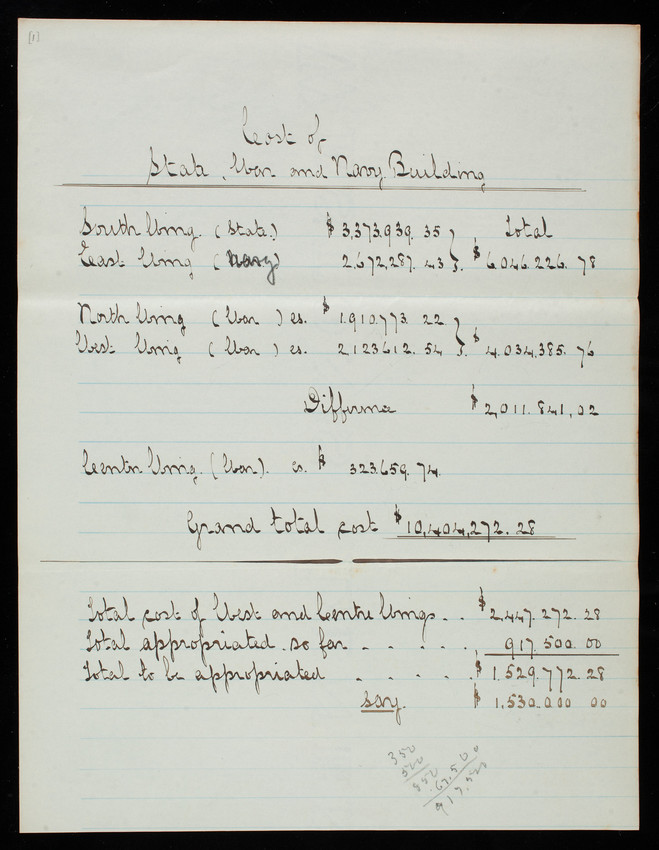 [1]
Cost of
State, War and Navy Building
South Wing. (State.) $ 3,373,939. 35 } Total
East Wing (Navy) 2,672,287. 43 }. $ 6,046,226. 78
North Wing (War) es. $ 1,910,773. 22 }
West Wing (War) es. 2,123,612. 54 }. $ 4,034,385. 76
Difference $ 2,011,841,02
Centre Wing. (War). es. $ 323,659. 74.
Grand total cost $ 10,404,272. 28
Total cost of West and Centre Wings.. $ 2,447,272. 28
Total appropriated so far . . . . . . 917,500 00
Total to be appropriated . . . . . $ 1,529,772.28
say. $ 1,530,000 00
350
500
850
67.500
917.500